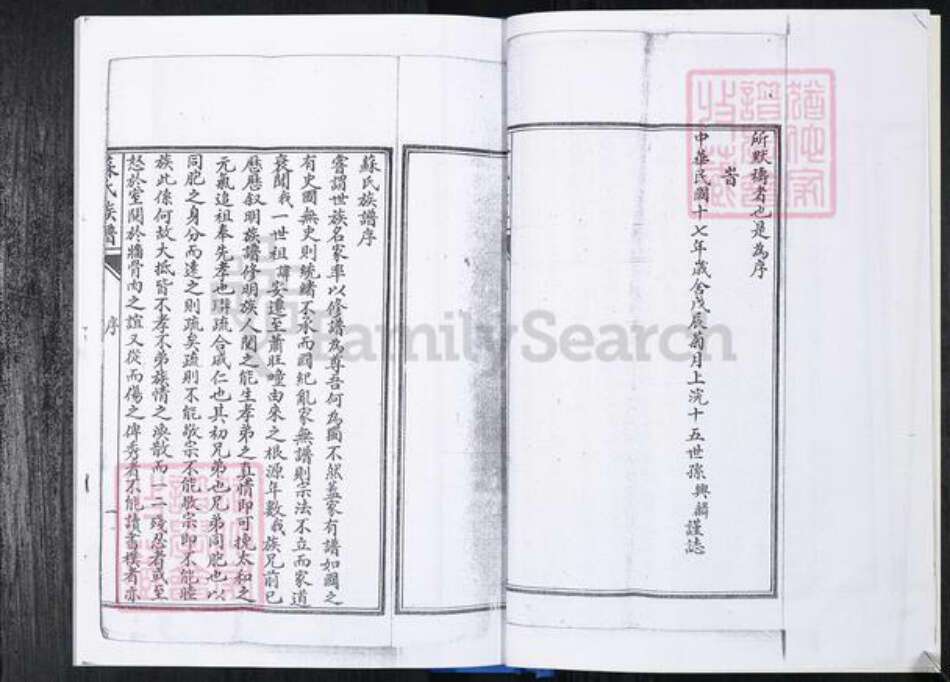 所默禱者也是為序
旹
中華民國十七年歲舍戊辰菊月上浣十五世孫興麟謹誌
蘇氏族譜序
嘗謂世族名家率以修譜為尊吾何為國不然蓋家有譜如國之
有史國無史則統緒不承而國紀亂家無譜則宗法不立而家道
衰聞我一世祖諱安遷至蕭旺疃由來之根源年數我族兄前已
歷歷叙明族譜修明族人閱之能生孝弟之真情即可挽太和之
元氣追祖奉先孝也聯疏合戚仁也其初兄弟也兄弟同胞也以
同胞之身分而遠之則疏矣疏則不能敬宗不能敬宗即不能睦
族此係何故大抵皆不孝不弟族情之渙散而一二殘忍者或至
怒於室鬩於牆骨肉之誼又從而傷之俾秀者不能讀書樸者亦
蘇氏族譜
序
FamilySearch